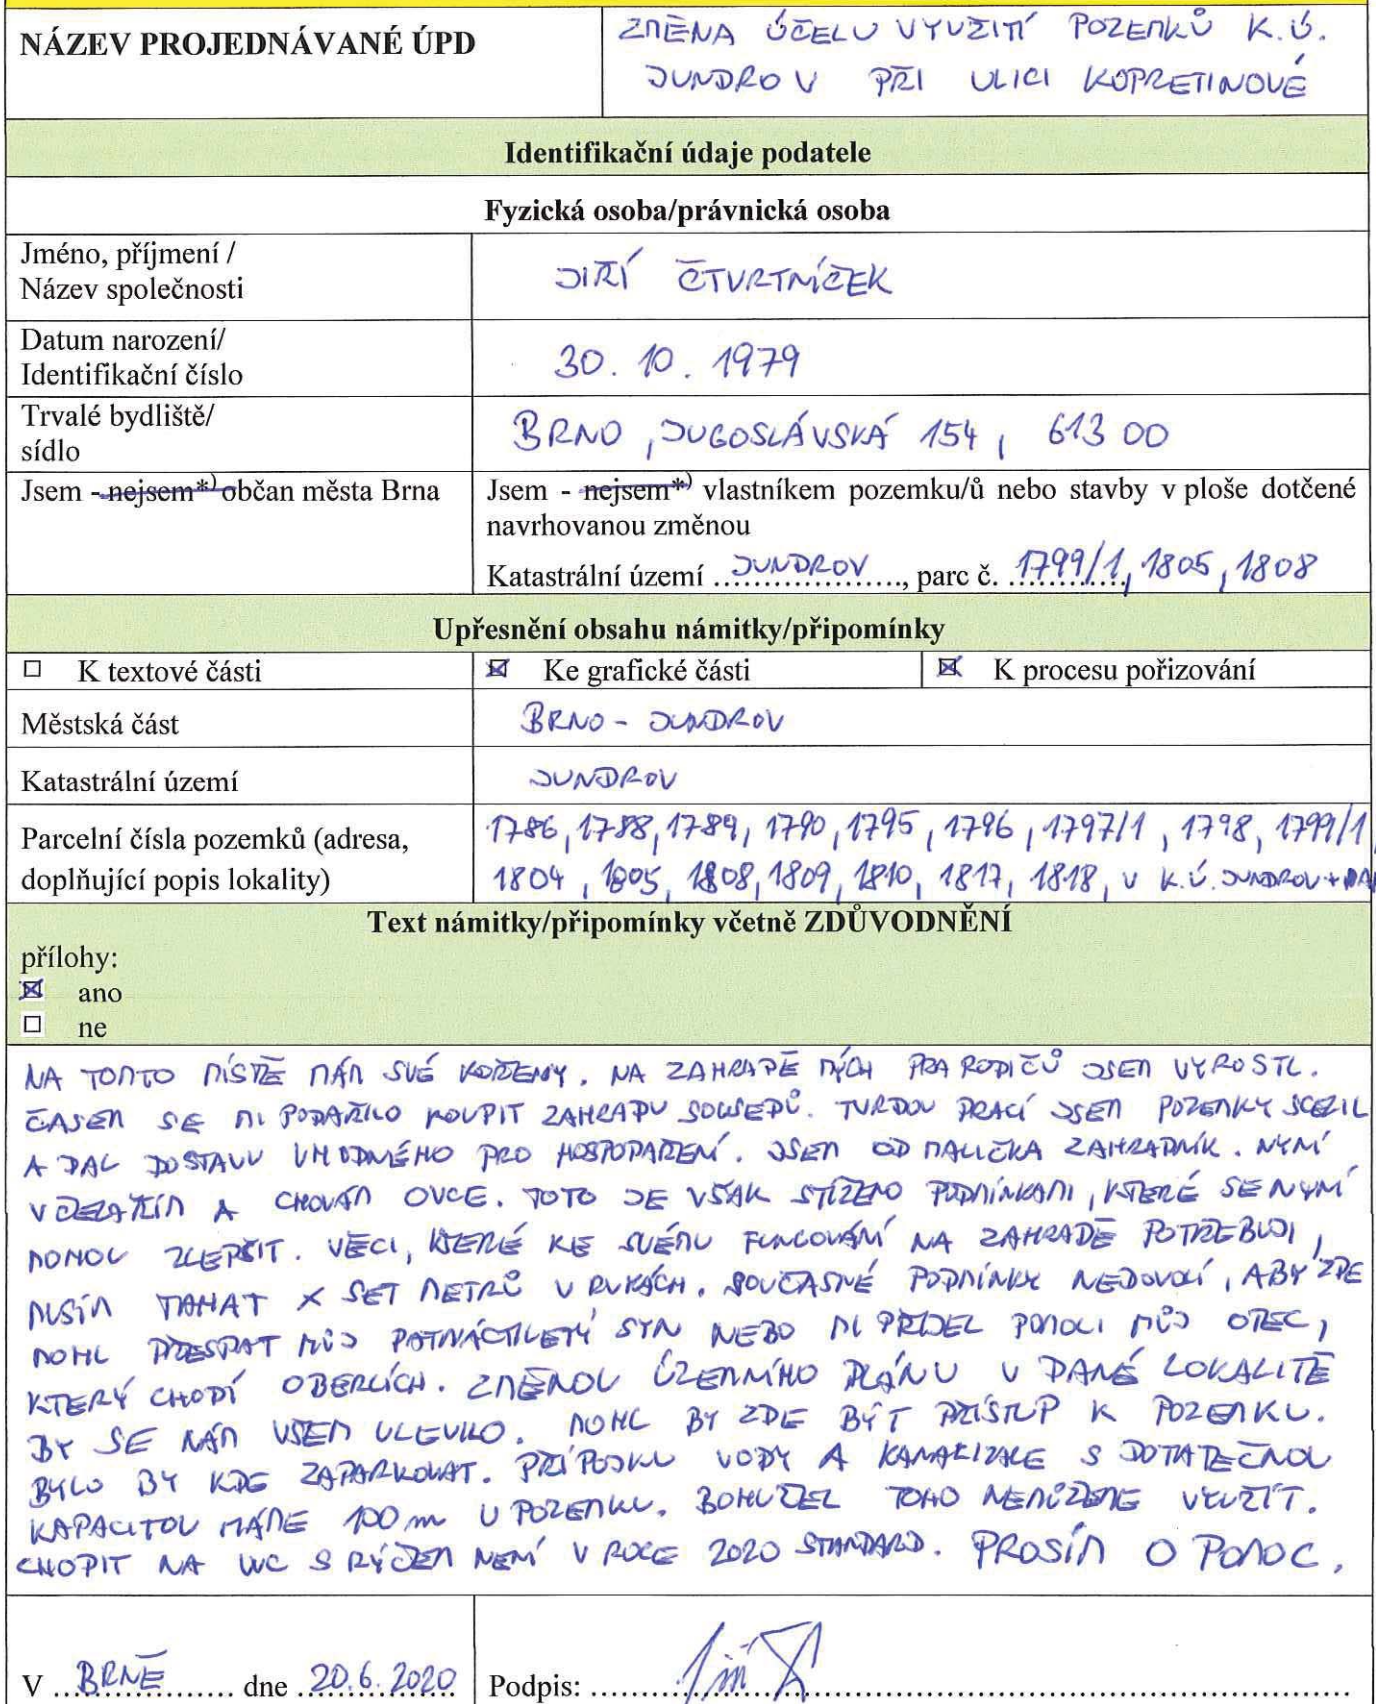 NÁZEV PROJEDNÁVANÉ ÚPD
ZMĚNA ÚČELU VYUŽITÍ POZEMKŮ K.Ú.
JUNDROV PŘI ULICI KOPRETINOVÉ
Identifikační údaje podatele
Fyzická osoba/právnická osoba
Jméno, příjmení /
Název společnosti
JIŘÍ ČTVRTNÍČEK
Datum narození/
Identifikační číslo
30. 10. 1979
Trvalé bydliště/
sídlo
BRNO, JUGOSLÁVSKÁ 154, 613 00
Jsem - nejsem*) občan města Brna
Jsem - nejsem*) vlastníkem pozemku/ů nebo stavby v ploše dotčené
navrhovanou změnou
Katastrální území JUNDROV, parc č. 1799/1, 1805, 1808
Upřesnění obsahu námitky/připomínky
☐ K textové části
☒ Ke grafické části
☒ K procesu pořizování
Městská část
BRNO - JUNDROV
Katastrální území
JUNDROV
Parcelní čísla pozemků (adresa,
doplňující popis lokality)
1786, 1788, 1789, 1790, 1795, 1796, 1797/1, 1798, 1799/1,
1804, 1805, 1808, 1809, 1810, 1817, 1818, V K.Ú. JUNDROV +
Text námitky/připomínky včetně ZDŮVODNĚNÍ
přílohy:
☒ ano
☐ ne
NA TOMTO MÍSTĚ MÁM SVÉ KOŘENY. NA ZAHRADĚ MÝCH PRARODIČŮ JSEM VYROSTL.
ČASEM SE MI PODAŘILO KOUPIT ZAHRADU SOUSEDŮ. TVRDOU PRACÍ JSEM POZEMKY SCELIL
A DAL DO STAVU VHODNÉHO PRO HOSPODAŘENÍ. JSEM OD MALIČKA ZAHRADNÍK. NYNÍ
VČELAŘÍM A CHOVÁM OVCE. TOTO JE VŠAK STÍŽENO PODMÍNKAMI, KTERÉ SE NYNÍ
MOHOU ZLEPŠIT. VĚCI, KTERÉ KE SVÉMU FUNGOVÁNÍ NA ZAHRADĚ POTŘEBUJI,
MUSÍM TAHAT X SET METRŮ V RUKÁCH. SOUČASNÉ PODMÍNKY NEDOVOLÍ, ABY ZDE
MOHL PŘESPAT MŮJ PATNÁCTILETÝ SYN NEBO MI PŘIJEL POMOCI MŮJ OTEC,
KTERÝ CHODÍ O BERLÍCH. ZMĚNOU ÚZEMNÍHO PLÁNU V DANÉ LOKALITĚ
BY SE NÁM VŠEM ULEVILO. MOHL BY ZDE BÝT PŘÍSTUP K POZEMKU.
BYLO BY KDE ZAPARKOVAT. PŘÍPOJKU VODY A KANALIZACE S DOTATEČNOU
KAPACITOU MÁME 100 m U POZEMKU. BOHUŽEL TOHO NEMŮŽEME VYUŽÍT.
CHODIT NA WC S RÝČEM NENÍ V ROCE 2020 STANDARD. PROSÍM O POMOC.
V BRNĚ dne 20.6.2020
Podpis: